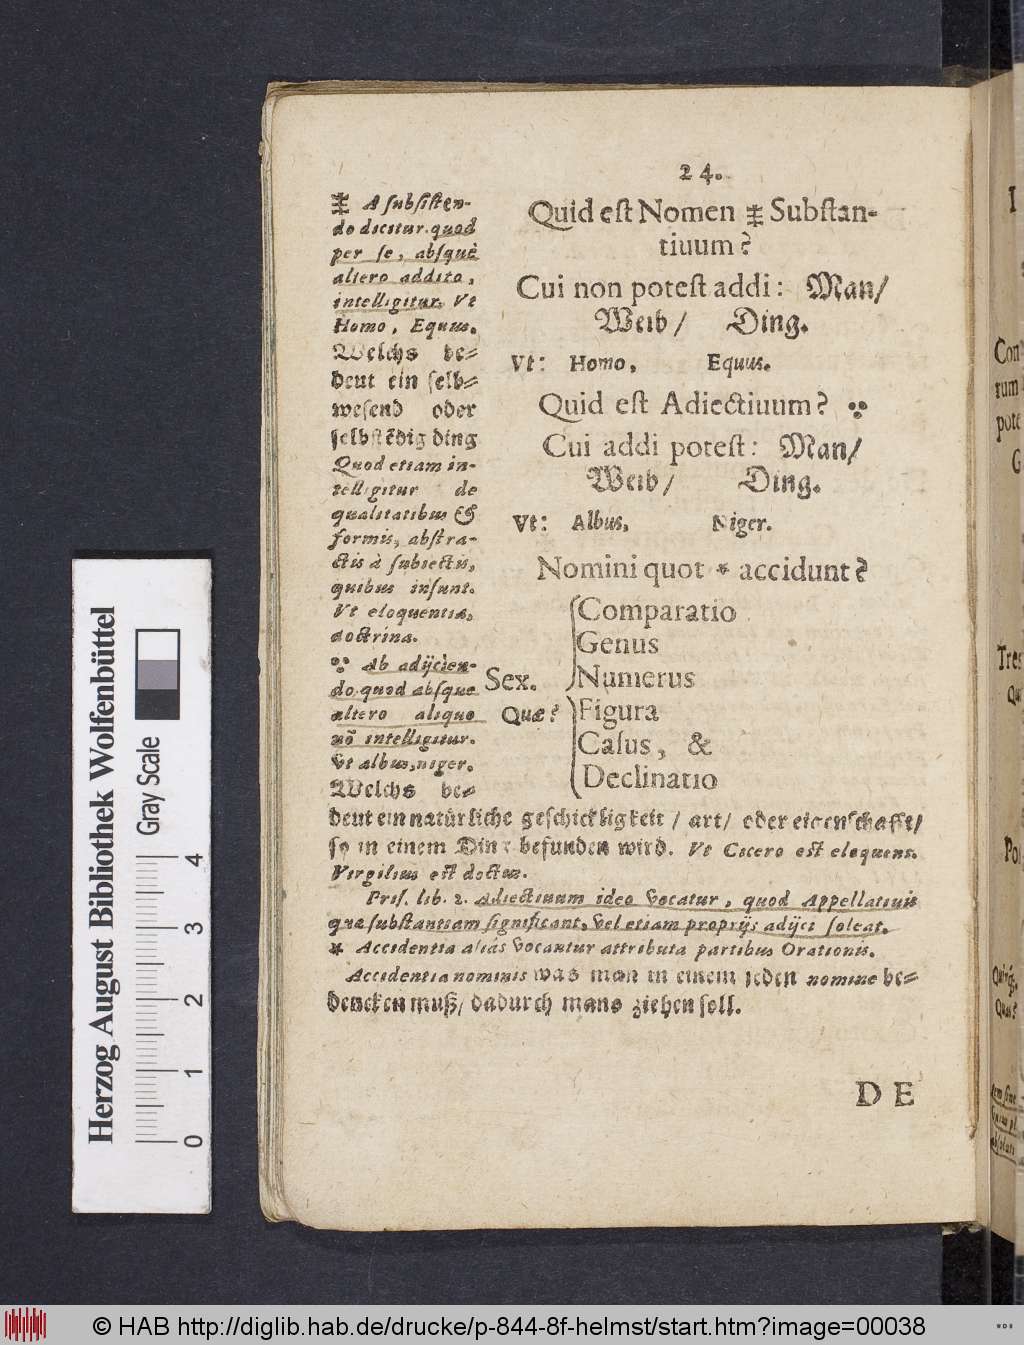 24.
Quid eſt Nomen ⹋ Subſtan-
tiuum?
Cui non poteſt addi: Man/
Weib/ Ding.
Vt: Homo, Equus.
Quid eſt Adiectiuum?
Cui addi poteſt: Man/
Weib/ Ding.
Vt: Albus, Niger.
Nomini quot * accidunt?
Sex.
Quæ?
Comparatio
Genus
Numerus
Figura
Caſus, &
Declinatio
A ſubſiſten-
do dicitur. quod
per ſe, abſquè
altero addito,
intelligitur. Vt
Homo, Equus.
Welchs be-
deut ein ſelb-
weſend oder
ſelbſtẽdig ding
Quod etiam in-
telligitur de
qualitatibus &
formis, abſtra-
ctis à ſubiectis,
quibus inſunt.
Vt eloquentia,
doctrina.
Ab adijcien-
do quod abſque
altero aliquo
nõ intelligitur.
Vt albus, niger.
Welchs be-
deut ein natürliche geſchickligkeit / art/ oder eigenſchafft/
ſo in einem Ding befunden wird. Vt Cicero eſt eloquens.
Virgilius eſt doctus.
Priſ. lib. 2. Adiectiuum ideo vocatur, quod Appellatiuis
quæ ſubſtantiam ſignificant, vel etiam proprijs adijci ſoleat.
* Accidentia aliâs vocantur attributa partibus Orationis.
Accidentia nominis was man in einem jeden nomine be-
dencken muß/ dadurch mans ziehen ſoll.
DE
Herzog August Bibliothek Wolfenbüttel
Gray Scale
0 1 2 3 4
© HAB http://diglib.hab.de/drucke/p-844-8f-helmst/start.htm?image=00038